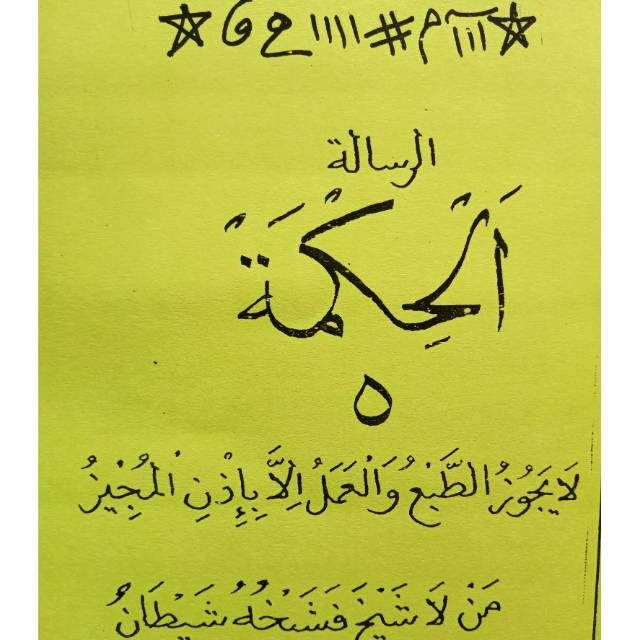 الرسالة
اَلْحِكْمَةَ
٥
لَا يَجُوْزُ الطَّبْعُ وَالْعَمَلُ اِلَّا بِإِذْنِ الْمُجِيْزُ
مَنْ لَا شَيْخَ فَشَيْخُهُ شَيْطَانٌ